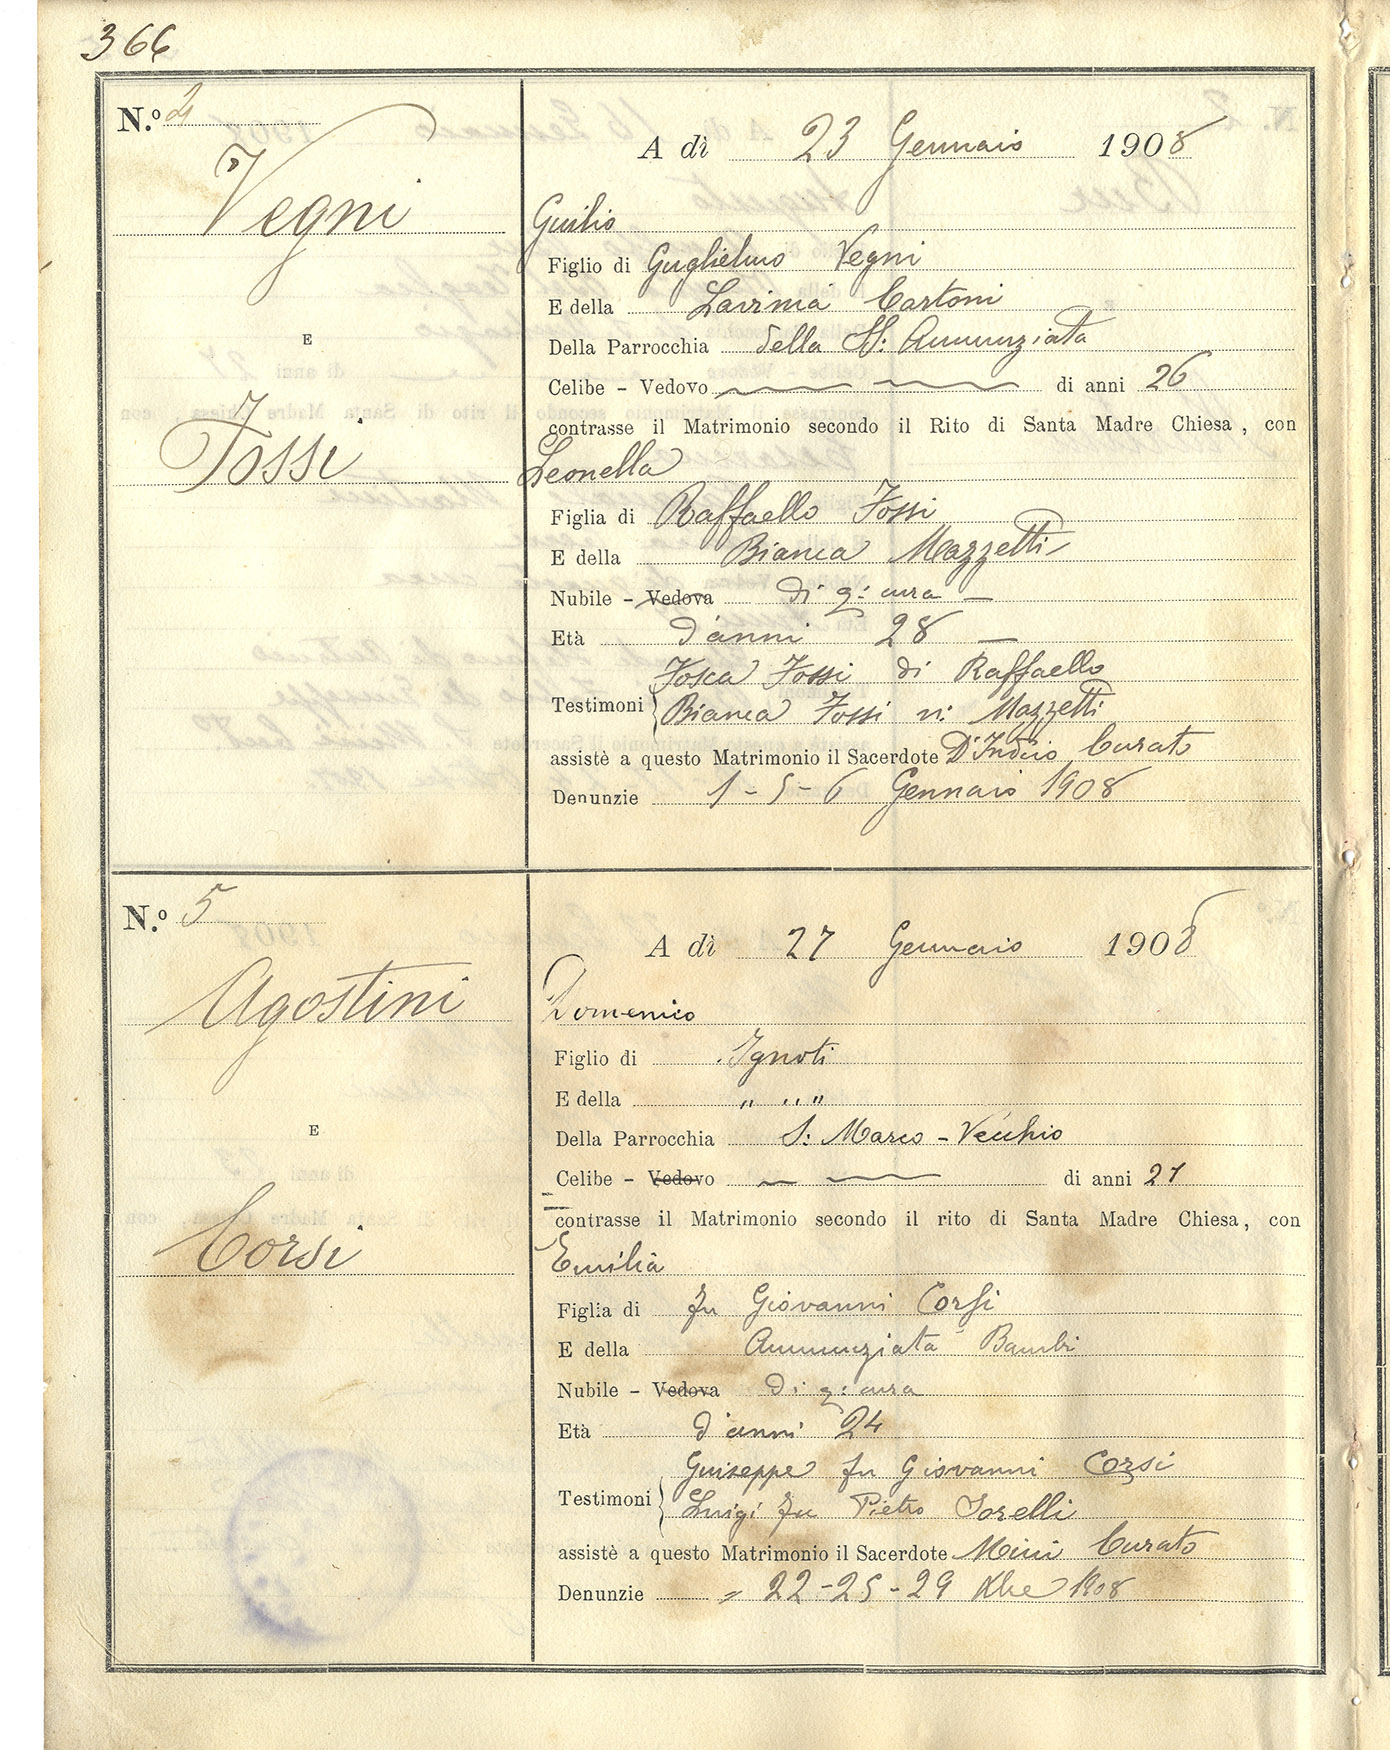 366
N.º 4
Vegni
E
Fossi
A dì 23 Gennaio 1908
Giulio
Figlio di Guglielmo Vegni
E della Lavinia Cartoni
Della Parrocchia della SS: Annunziata
Celibe - Vedovo di anni 26
contrasse il Matrimonio secondo il Rito di Santa Madre Chiesa, con
Leonella
Figlia di Raffaello Fossi
E della Bianca Mazzetti
Nubile - Vedova di q: cura
Età d'anni 28
Testimoni { Tosca Fossi di Raffaello
Bianca Fossi n: Mazzetti
assistè a questo Matrimonio il Sacerdote D'Indico Curato
Denunzie 1 - 5 - 6 Gennaio 1908
N.º 5
Agostini
E
Corsi
A dì 27 Gennaio 1908
Domenico
Figlio di Ignoti
E della " " "
Della Parrocchia S: Marco - Vecchio
Celibe - Vedovo di anni 27
contrasse il Matrimonio secondo il rito di Santa Madre Chiesa, con
Emilia
Figlia di fu Giovanni Corsi
E della Annunziata Bambi
Nubile - Vedova di q: cura
Età d'anni 24
Testimoni { Giuseppe fu Giovanni Corsi
Luigi fu Pietro Torelli
assistè a questo Matrimonio il Sacerdote Mini Curato
Denunzie 22 - 25 - 29 Xbre 1908